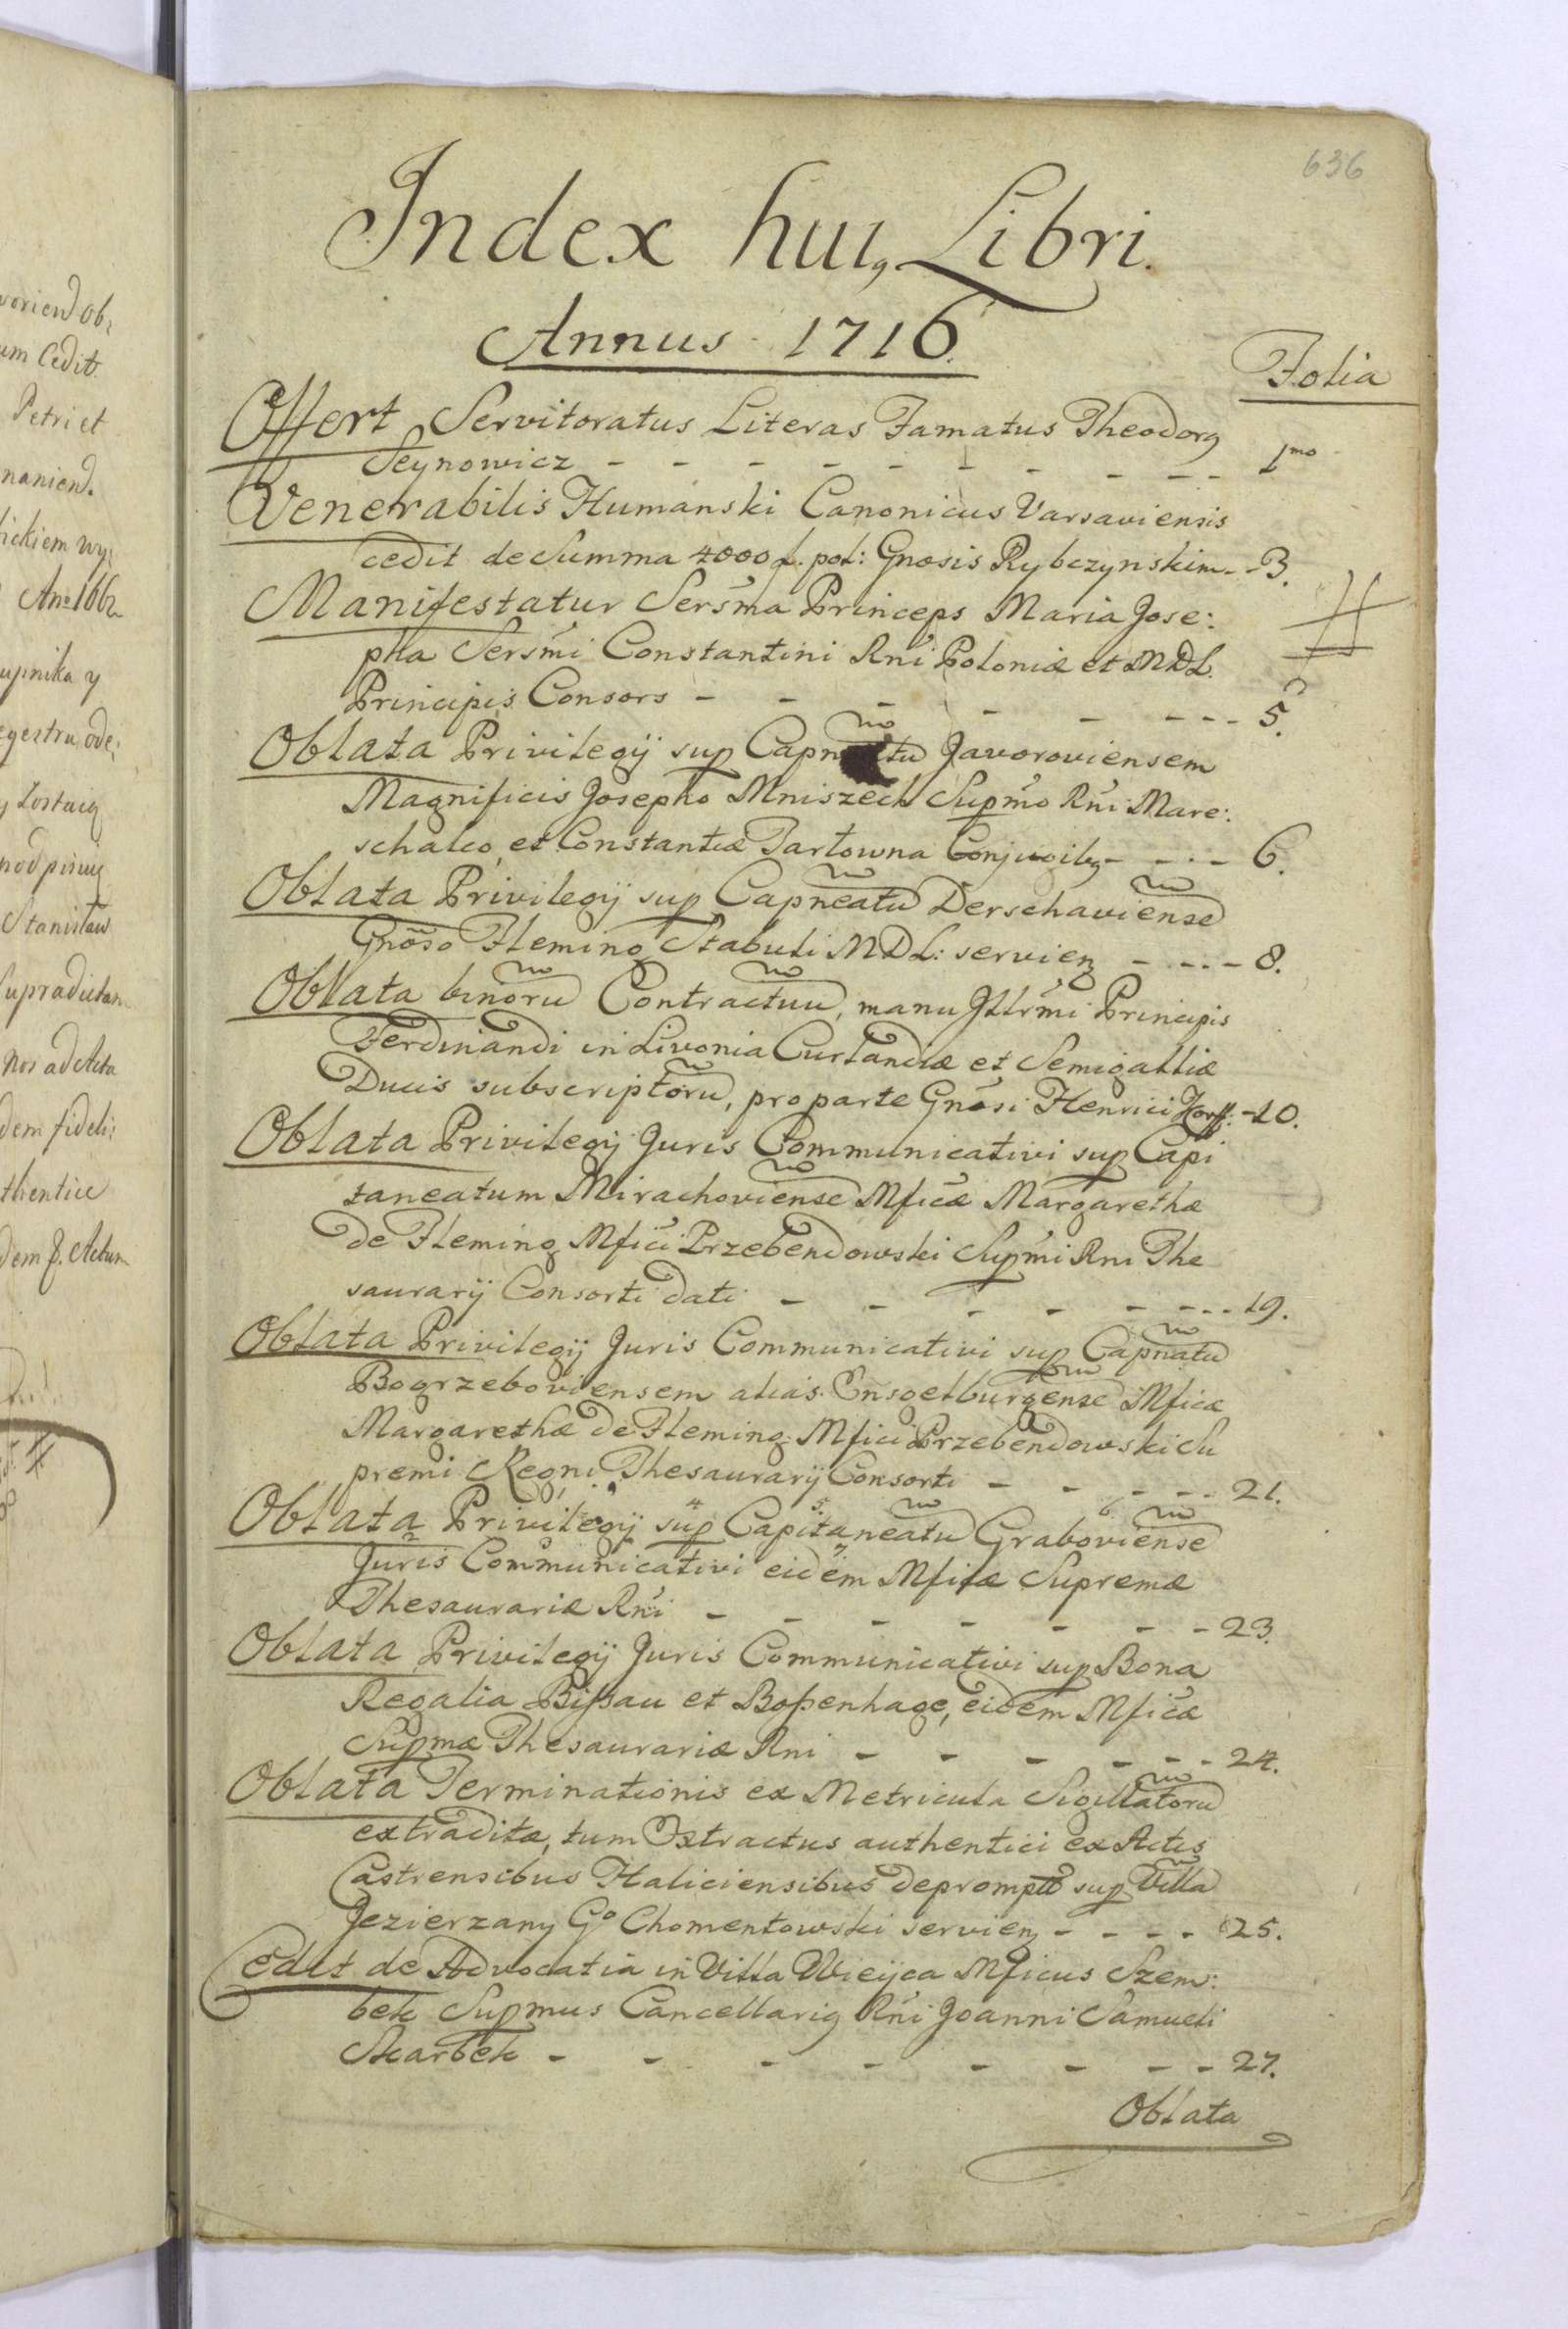 636
Index hui9 Libri.
Annus 1716.
Folia
Offert Servitoratus Literas Famatus Theodor9
Seynowicz - - - - - - - - - - 1mo
Venerabilis Humanski Canonicus Varsaviensis
cedit de Summa 4000 f. pol: Gnosis Rybczynskim - - 3.
Manifestatur Sersma Princeps Maria Jose:
pha Sersmi Constantini Rni Poloniæ et MDL.
Principis Consors - - - - - - - - 5.
Oblata Privilegij sup Capneatu Javoroviensem
Magnificis Josepho Mniszech Supmo Rni Mare:
schalco, et Constantiæ Tarłowna Conjugib9 - - - - 6.
Oblata Privilegij sup Capneatu Derschaviense
Gnoso Fleming Stabuli MDL: servien - - - - 8.
Oblata binoru Contractuu, manu Jllrmi Principis
Ferdinandi in Livonia Curlandiæ et Semigalliæ
Ducis subscriptoru, pro parte Gnosi Henrici Korff. - 10.
Oblata Privilegij Juris Communicativi sup Capi
taneatum Mirachoviense Mficæ Margarethæ
de Fleming Mfici Przebendowski Supmi Rni The
saurarij Consorti dati - - - - - - - - 19.
Oblata Privilegij Juris Communicativi sup Capnatu
Bogrzeboviensem alias Ensgelburgense Mficæ
Margarethæ de Fleming Mfici Przebendowski Su
premi Regni Thesaurarij Consorti - - - - - 21.
Oblata Privilegij sup Capitaneatu Graboviense
Juris Communicativi eidem Mficæ Supremæ
Thesaurariæ Rni - - - - - - - - 23.
Oblata Privilegij Juris Communicativi sup Bona
Regalia Bißau et Boßenhage, eidem Mficæ
Supmæ Thesaurariæ Rni - - - - - - 24.
Oblata Terminationis ex Metricula Sigillatoru
extraditæ, tum Extractus authentici ex Actis
Castrensibus Haliciensibus deprompti sup Villa
Jezierzany Go Chomentowski servien - - - - 25.
Cedit de Advocatia in Villa Wieyca Mficus Szem:
bek Supmus Cancellari9 Rni Joanni Samueli
Skarbek - - - - - - - - 27.
Oblata
um Cedit
Petri et
Ano 1662
upnika y
nod pisuię
Stanisław
Supradictam
nos ad Acta
dem fideli:
thentice